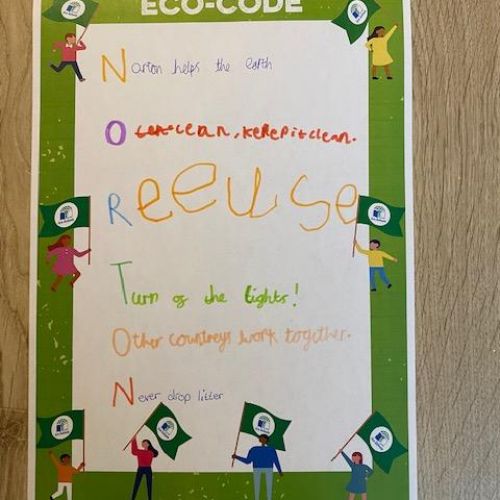 ECO-CODE
Narion helps the earth
Ocen clean, kerepit clean.
Reeuse
Turn of the lights!
Other countreys work together.
Never drop litter